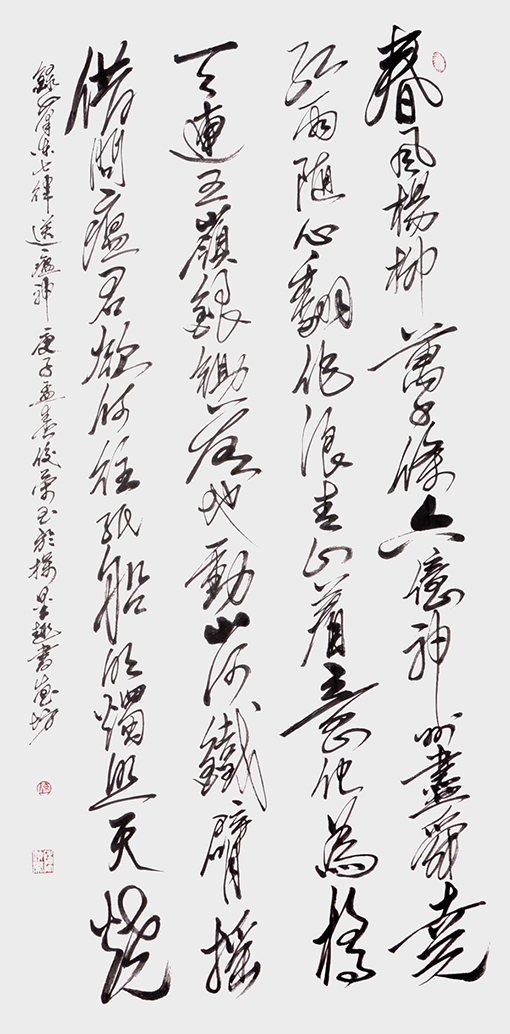 春風楊柳萬千條六億神州盡舜堯
紅雨隨心翻作浪青山着意化為橋
天連五嶺銀鋤落地動山河鐵臂搖
借問瘟君欲何往紙船明燭照天燒
錄毛澤东七律送瘟神庚子孟春俊榮书於墨趣書畫坊